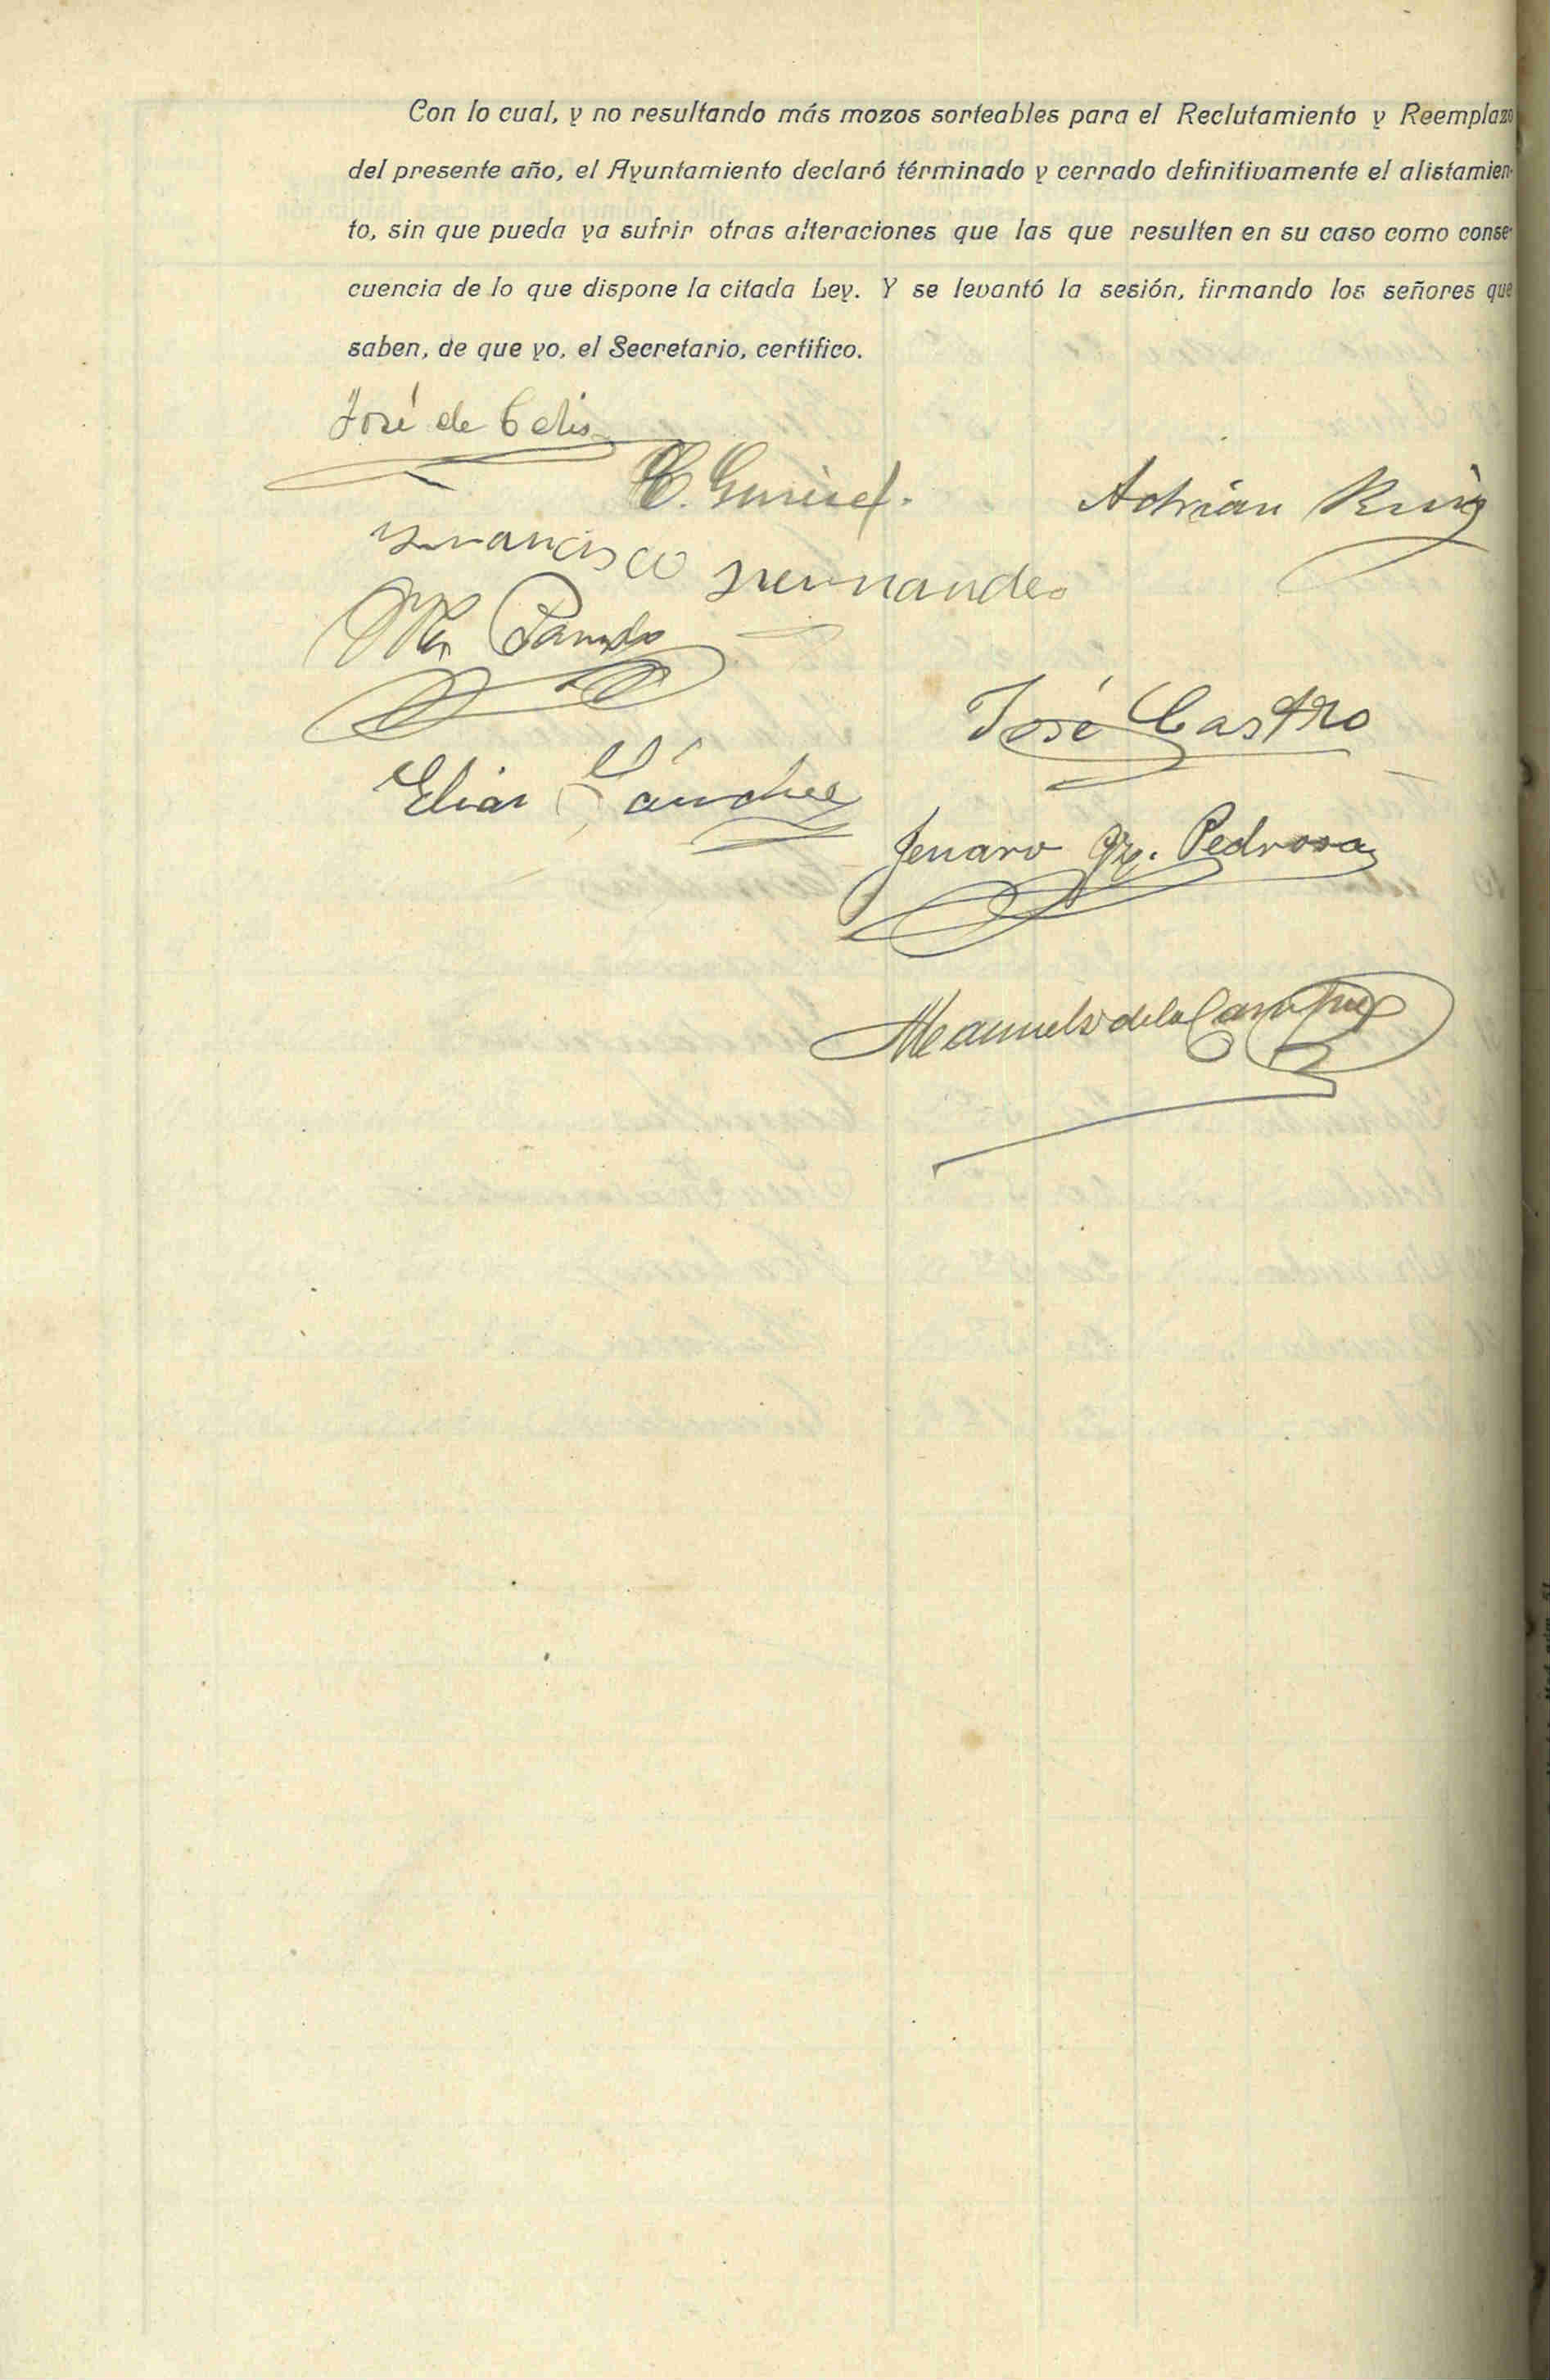 Con lo cual, y no resultando más mozos sorteables para el Reclutamiento y Reemplazo
del presente año, el Ayuntamiento declaró términado y cerrado definitivamente el alistamien-
to, sin que pueda ya sufrir otras alteraciones que las que resulten en su caso como conse-
cuencia de lo que dispone la citada Ley. Y se levantó la sesión, firmando los señores que
saben, de que yo, el Secretario, certifico.
José de Celis
Adrian Ruiz
Francisco Hernandez
José Castro
Elias Sánchez
Jenaro Gz. Pedrosa
Manuel de la Campa